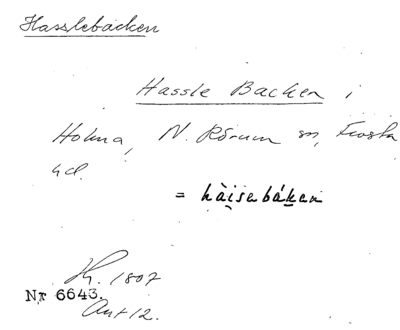 Hasslebacken
Hassle Backen i
Holma, N. Rörum sn, Frosta
hd.
= hàisebáken
Hh. 1807
Nr 6643.
Ant 12.